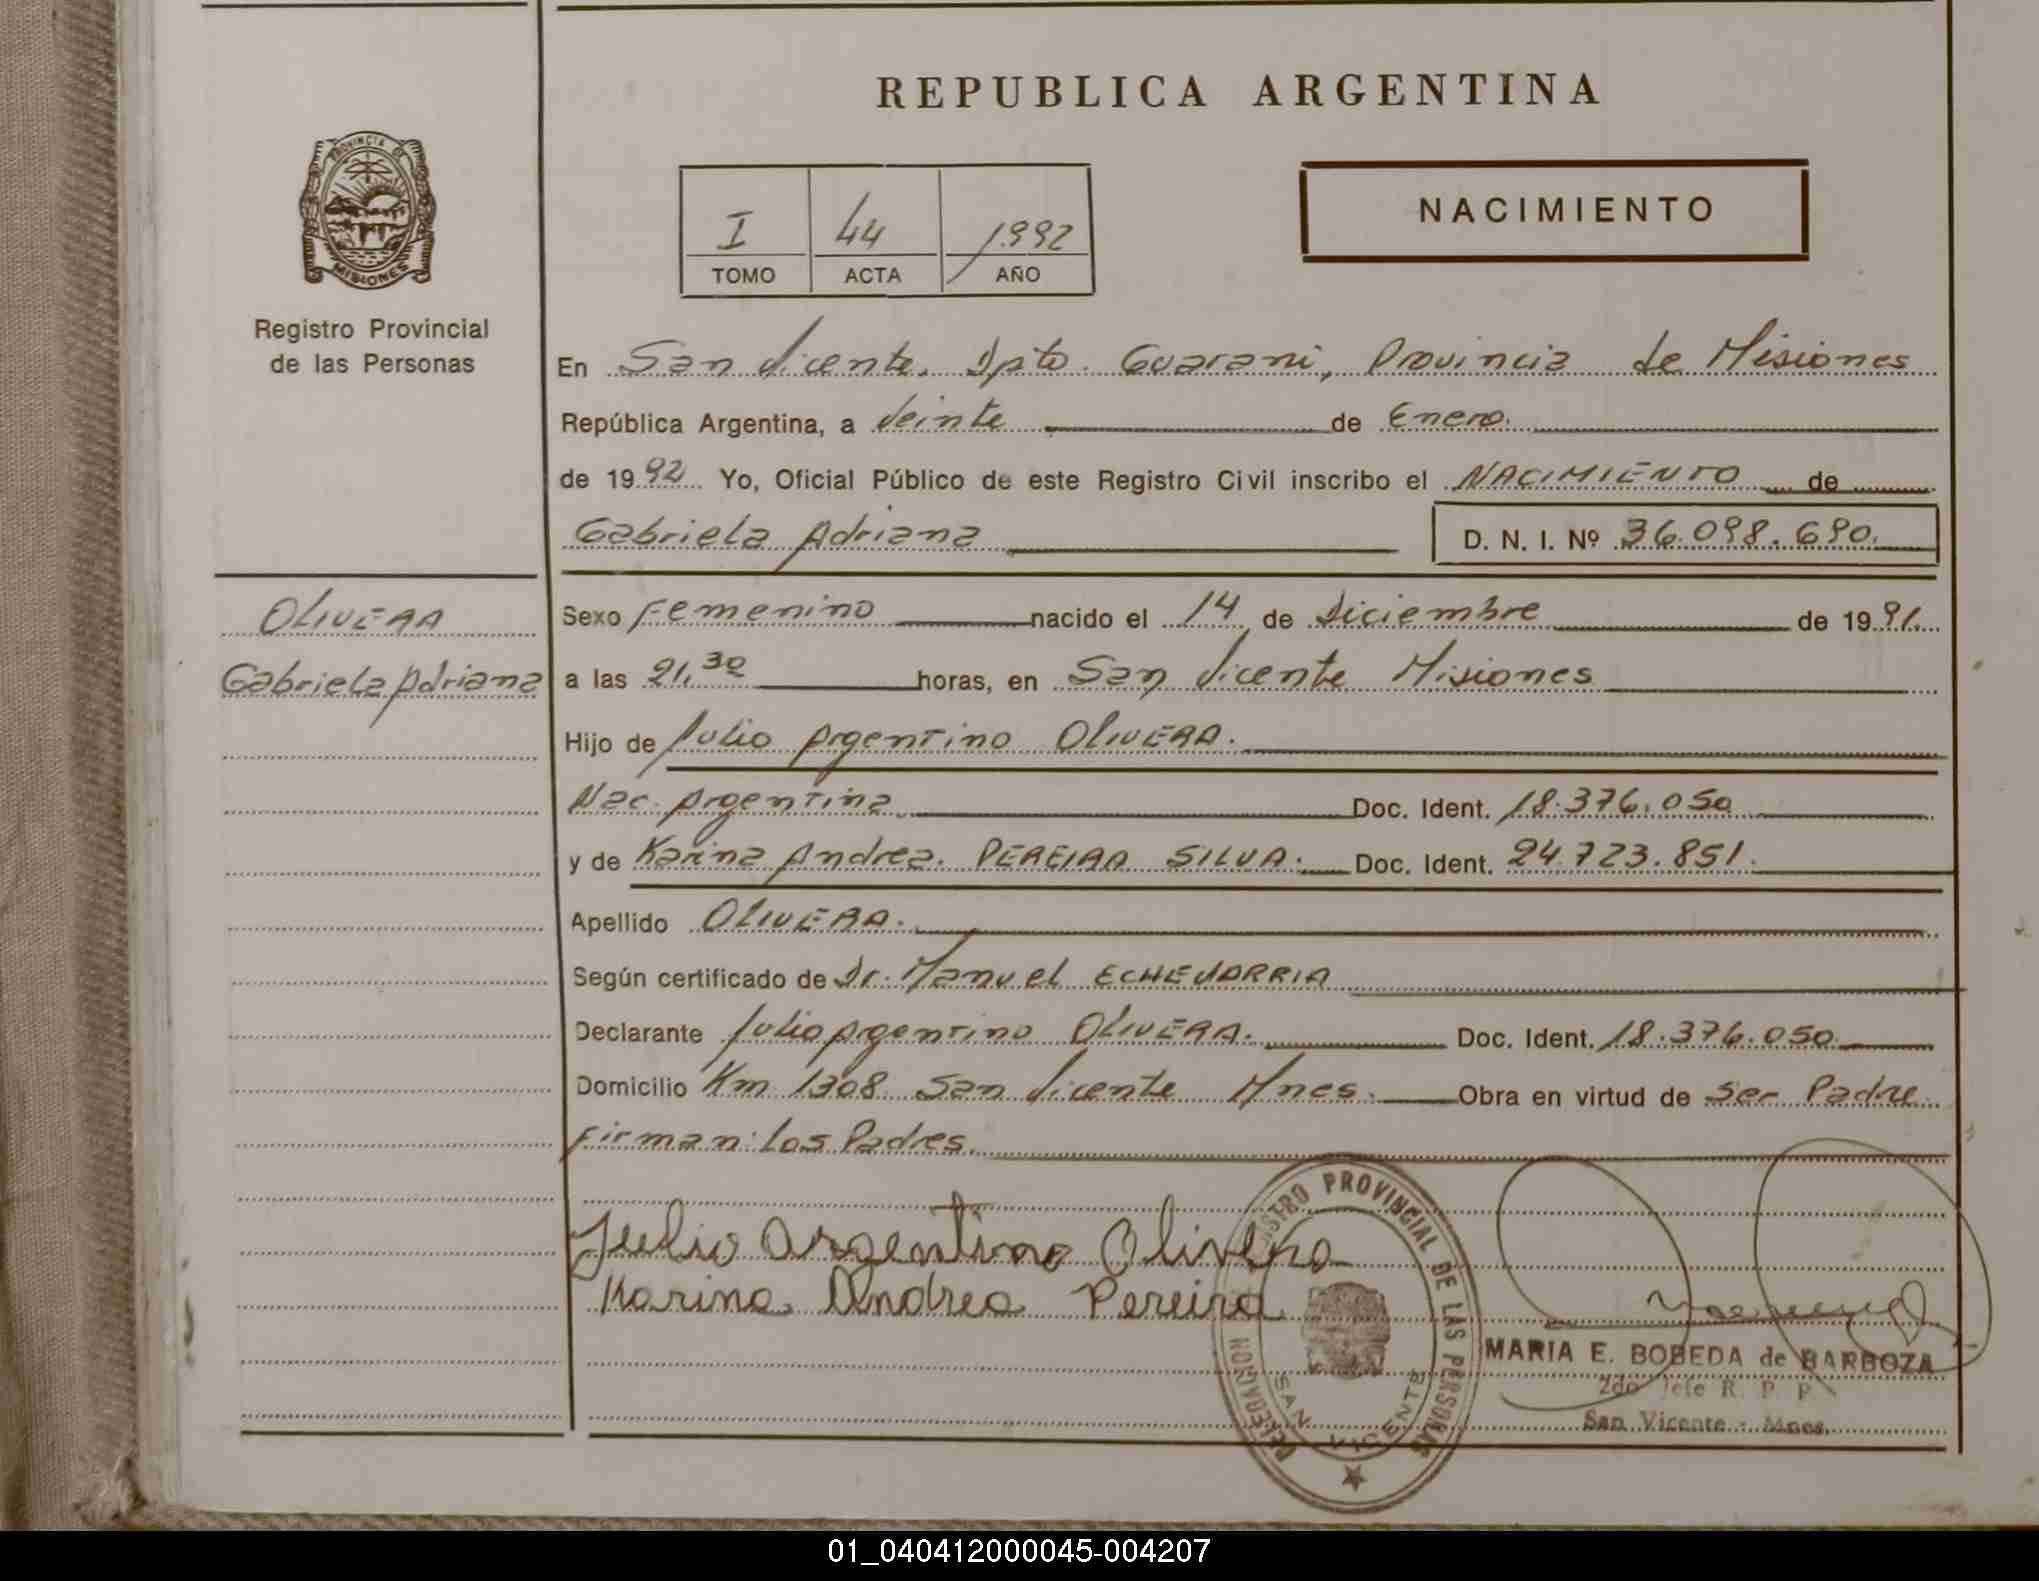 REPUBLICA ARGENTINA
PROVINCIA DE
MISIONES
Registro Provincial
de las Personas
I 44 1992
TOMO ACTA AÑO
NACIMIENTO
En San Vicente. Dpto. Guarani, Provincia de Misiones
República Argentina, a Veinte de Enero.
de 1992 Yo, Oficial Público de este Registro Civil inscribo el NACIMIENTO de
Gabriela Adriana D. N. I. Nº 36.098.690.
OLIVERA
Gabriela Adriana
Sexo Femenino nacido el 14 de Diciembre de 1991.
a las 21,30 horas, en San Vicente Misiones
Hijo de Julio Argentino OLIVERA.
Nac. Argentina Doc. Ident. 18.376.050
y de Karina Andrea. PEREIRA SILVA. Doc. Ident. 24.723.851.
Apellido OLIVERA.
Según certificado de Dr. Manuel ECHEVARRIA
Declarante Julio Argentino OLIVERA. Doc. Ident. 18.376.050
Domicilio Km 1308 San Vicente Mnes. Obra en virtud de Ser Padre
Firman: Los Padres.
Julio Argentino Olivera
Karina Andrea Pereira
REGISTRO PROVINCIAL DE LAS PERSONAS
DELEGACION
SAN VICENTE
MARIA E. BOBEDA de BARBOZA
2do Jefe R. P. P.
San Vicente - Mnes.
01_040412000045-004207